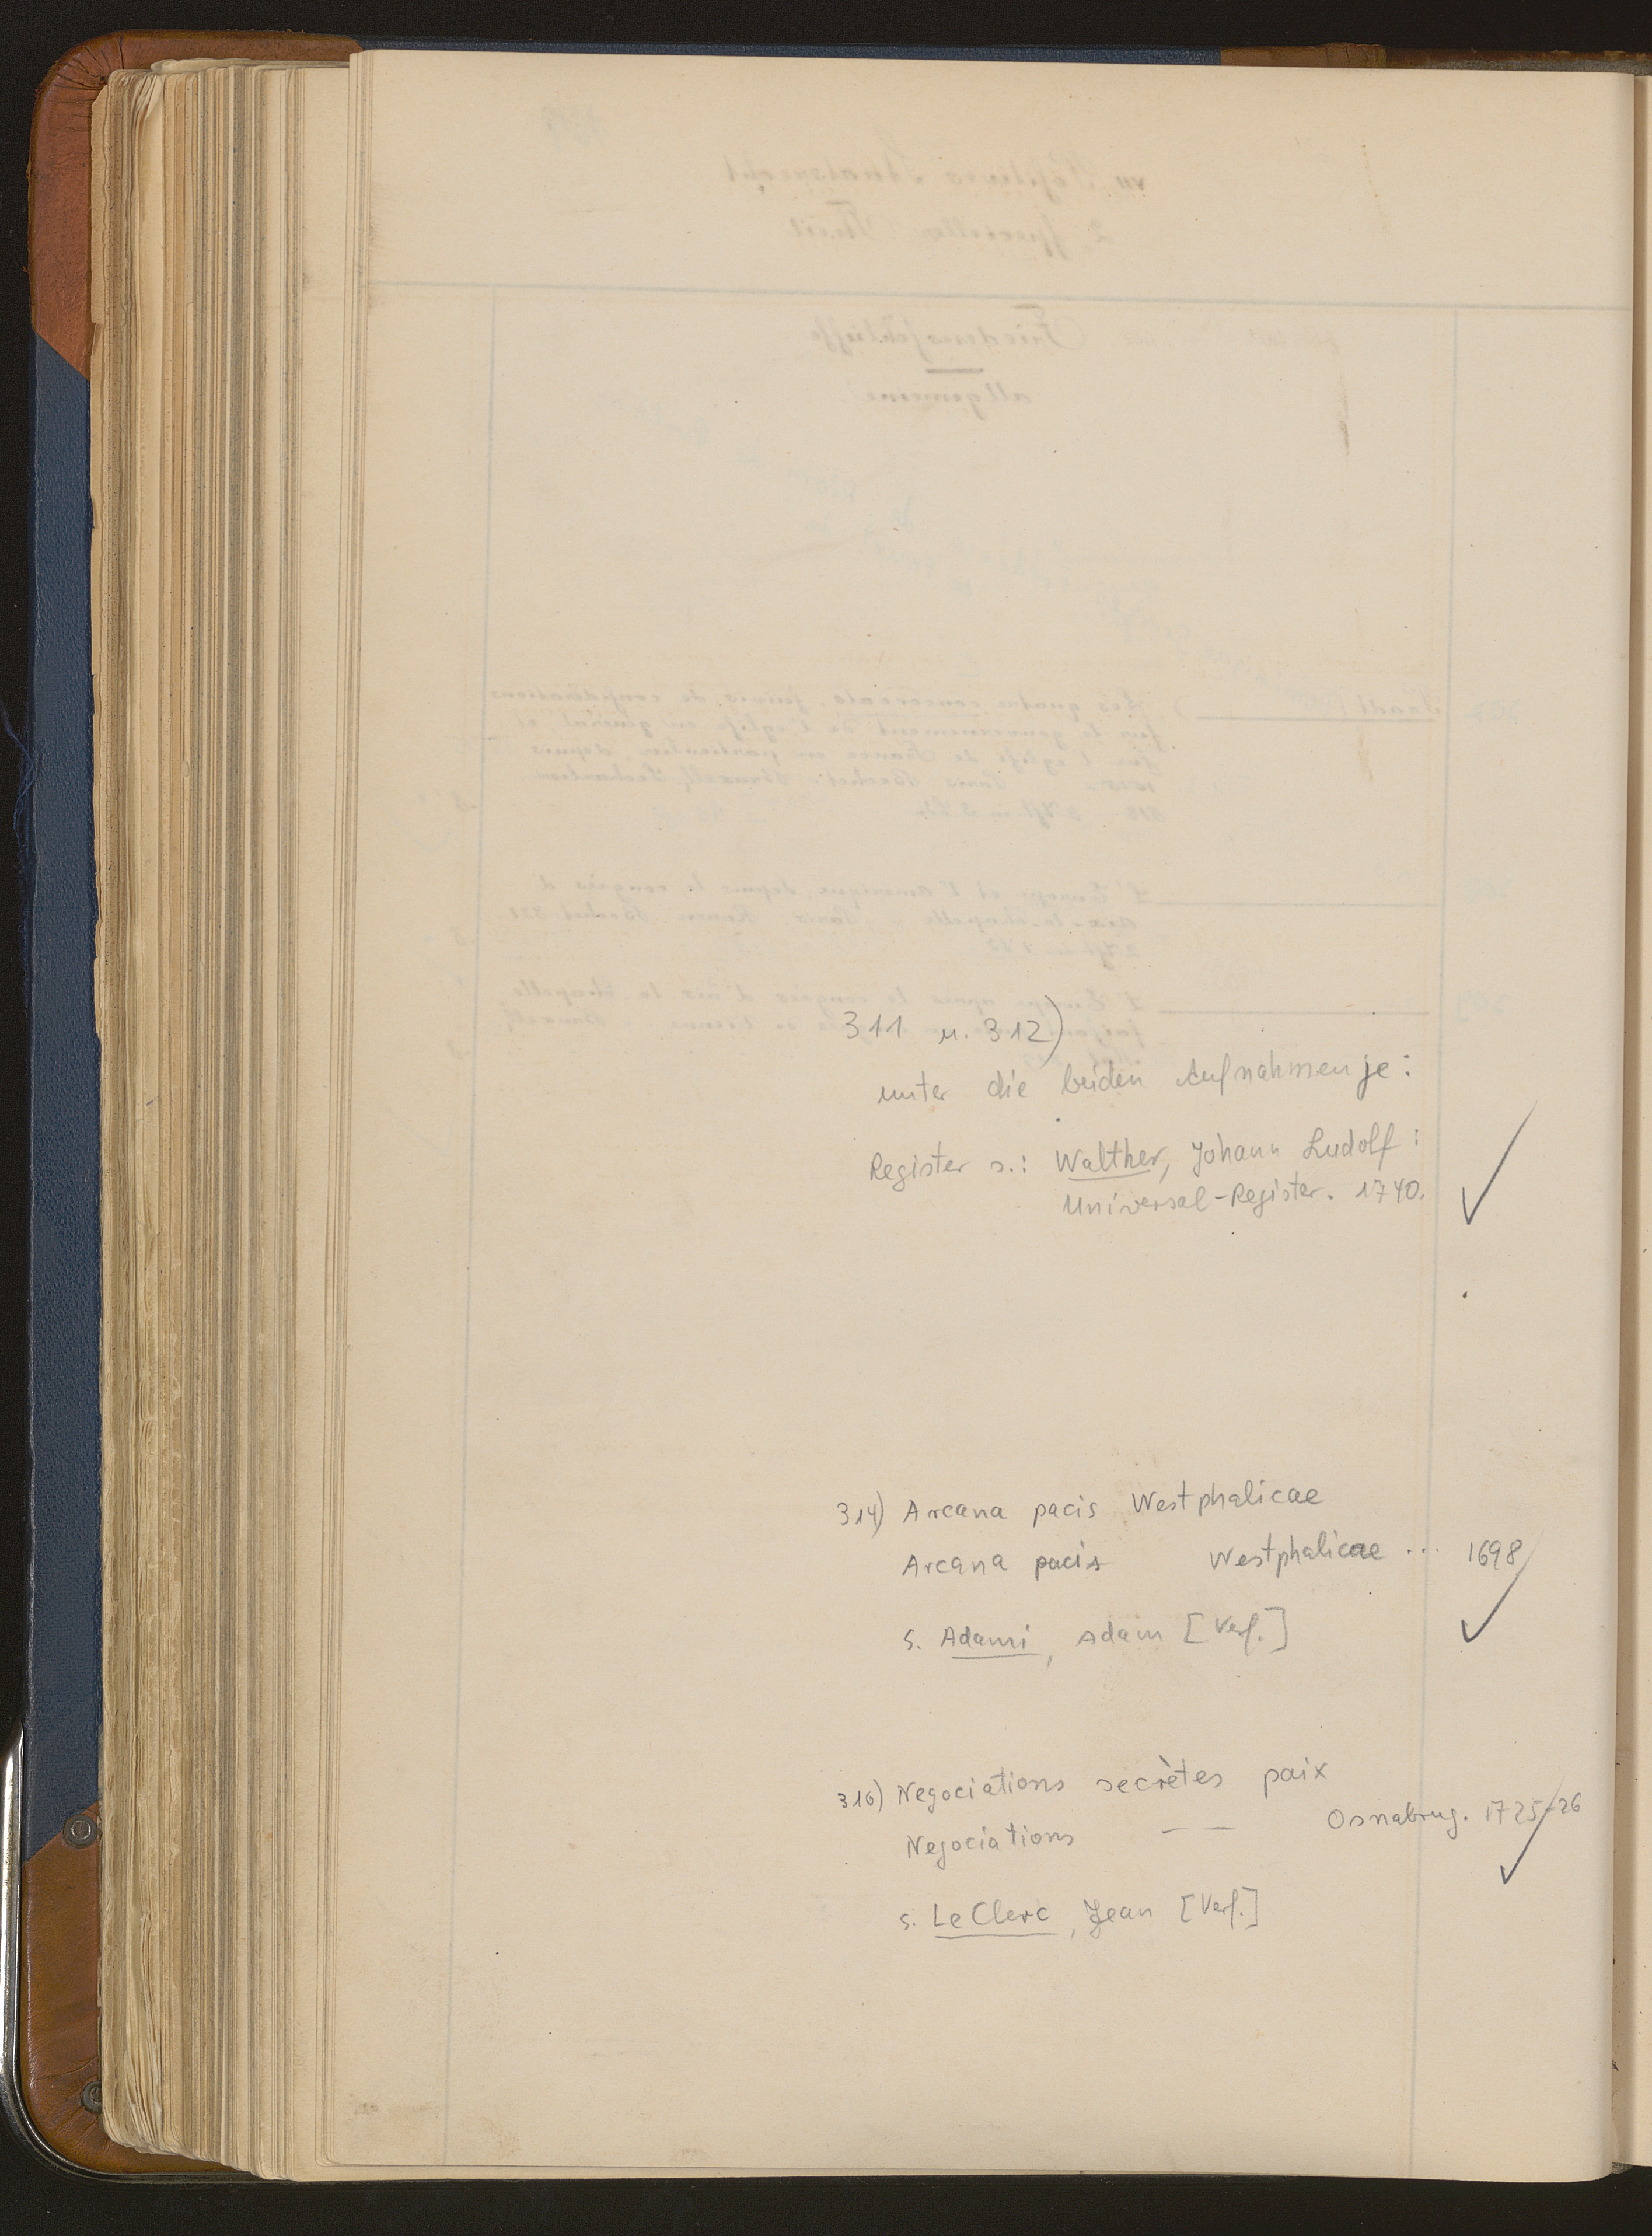 311 u. 312)
unter die beiden Aufnahmen je:
Register s.: Walther, Johann Ludolf:
Universal-Register. 1740.
314) Arcana pacis Westphalicae
Arcana pacis Westphalicae ... 1698
s. Adami, Adam [Verf.]
316) Negociations secrètes paix
Negociations — — Osnabrug. 1725-26
s. Le Clerc, Jean [Verf.]